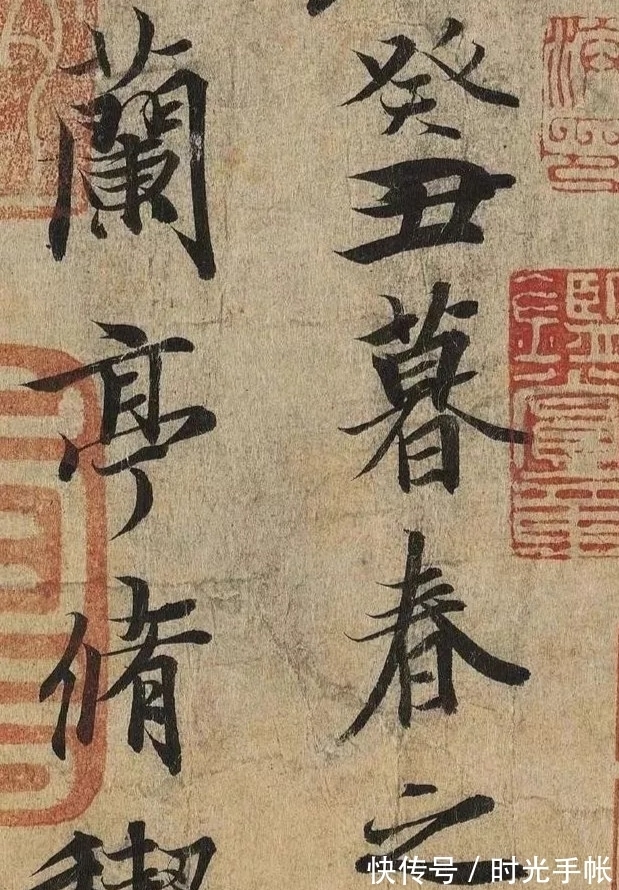 癸丑暮春之
蘭亭脩
快传号 / 时光手帐